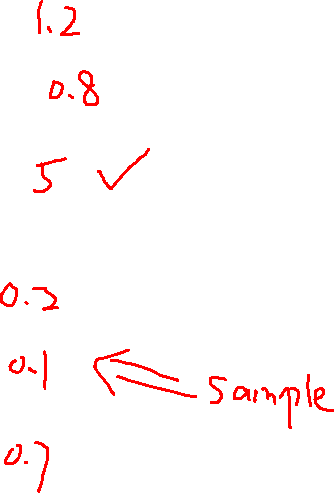 1.2
0.8
5 ✓
0.2
0.1 ⇐ sample
0.7